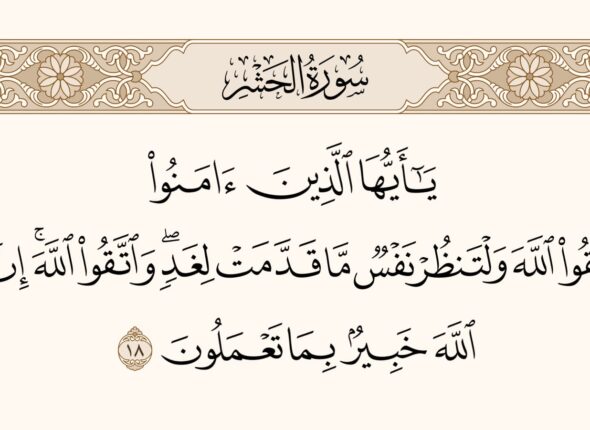 سُورَةُ الْحَشْرِ
يَـٰٓأَيُّهَا ٱلَّذِينَ ءَامَنُوا۟
ٱللَّهَ وَلْتَنظُرْ نَفْسٌ مَّا قَدَّمَتْ لِغَدٍ ۖ وَٱتَّقُوا۟ ٱللَّهَ ۚ
ٱللَّهَ خَبِيرٌۢ بِمَا تَعْمَلُونَ ١٨